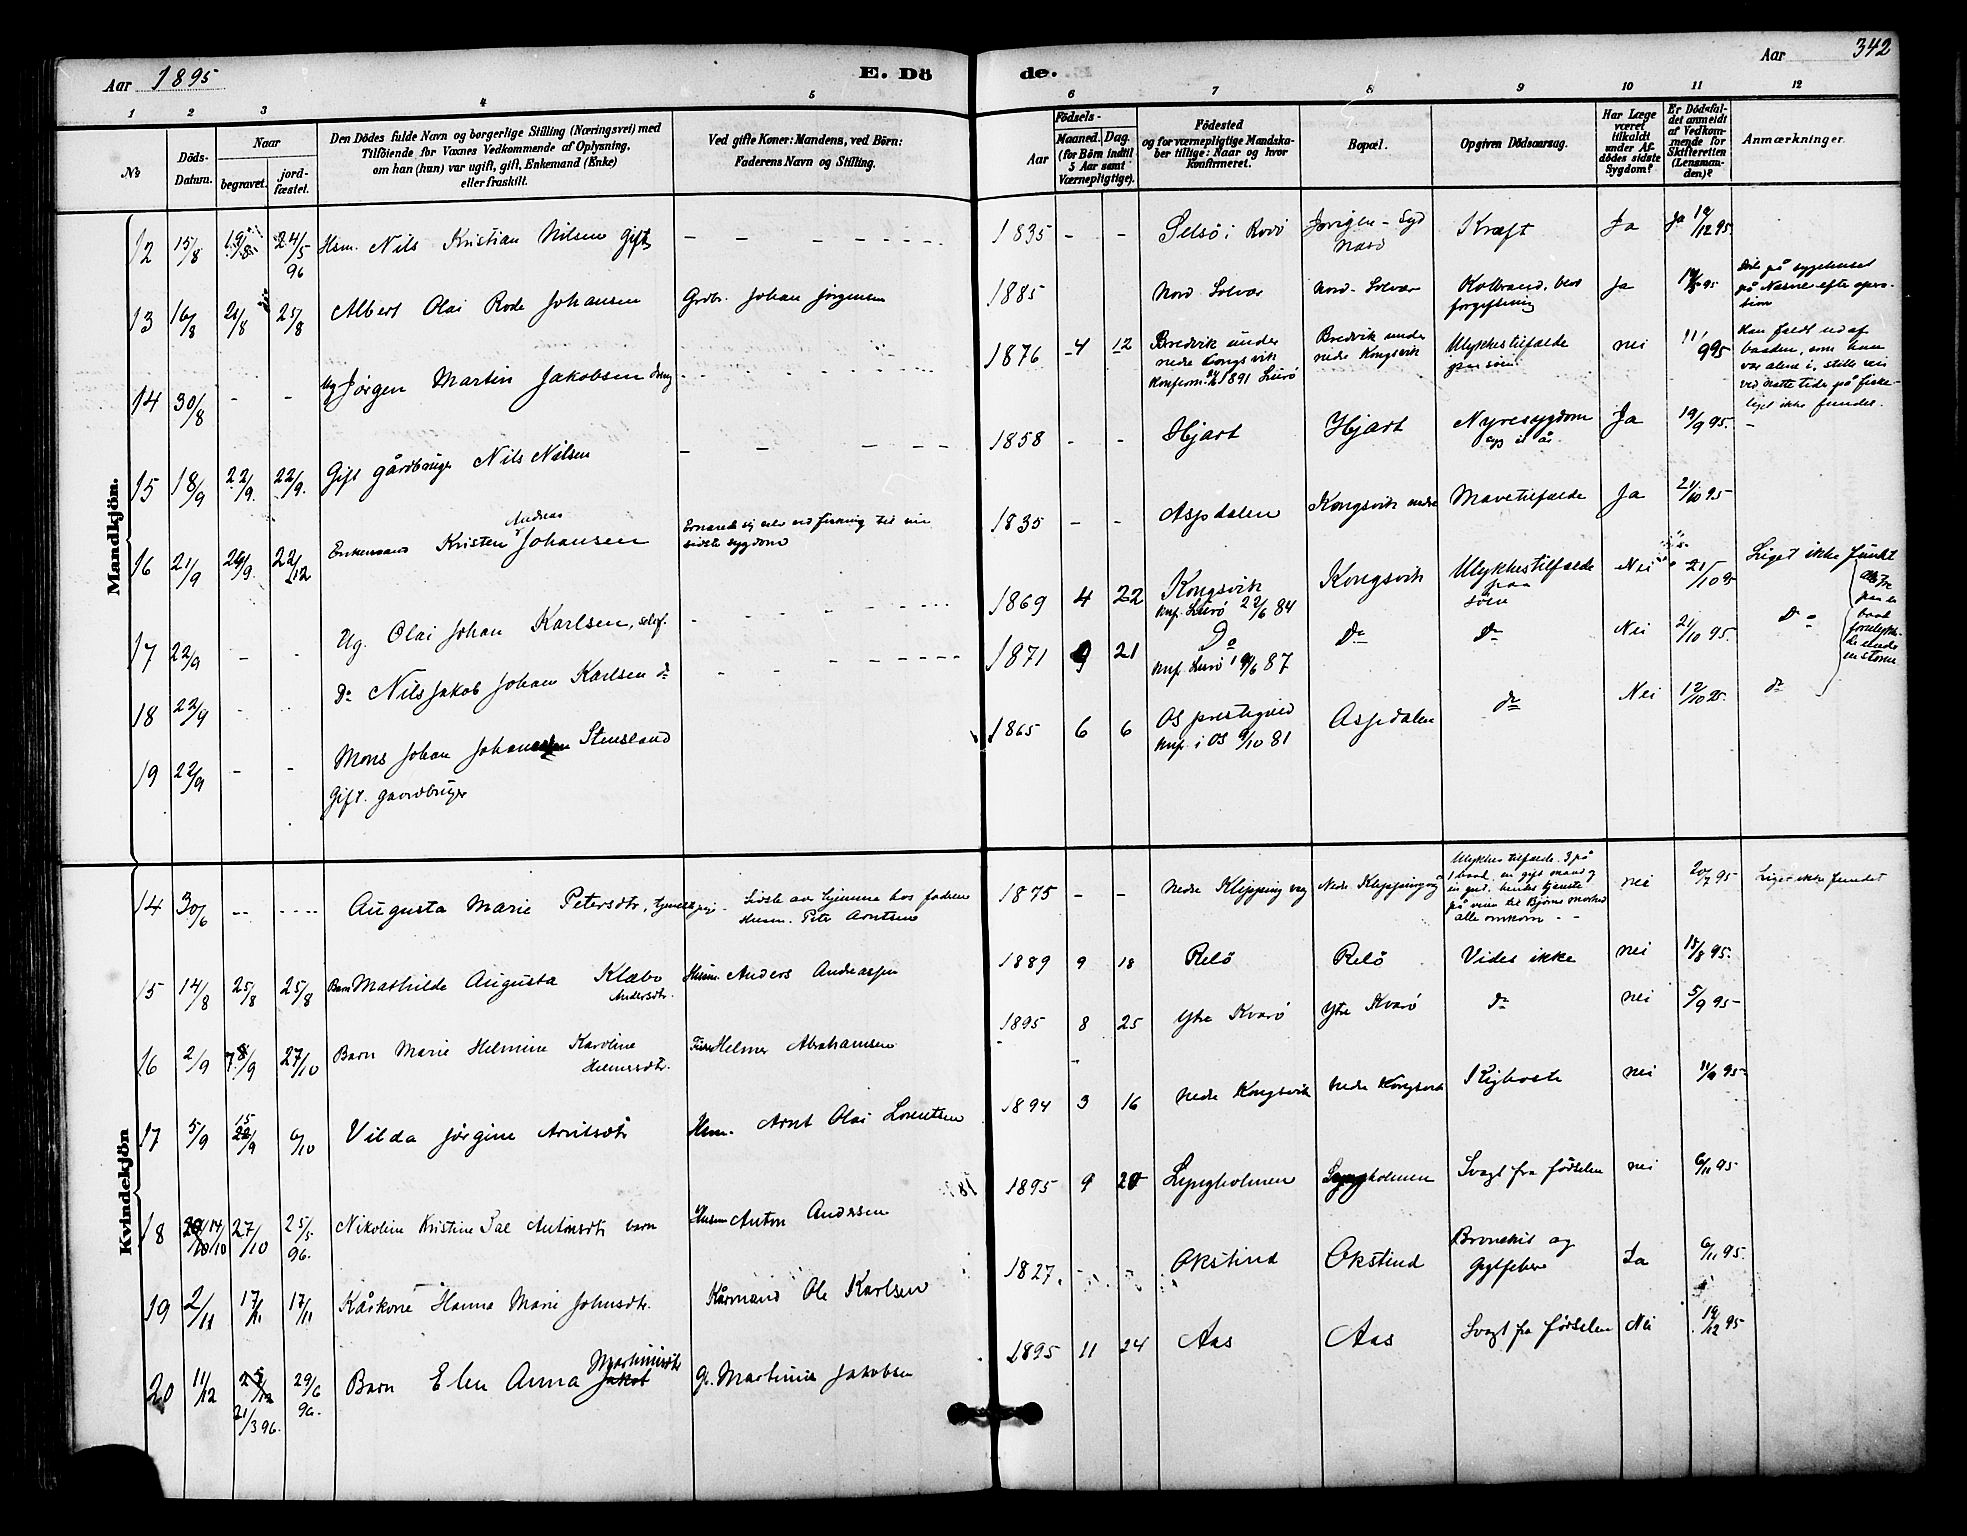 Aar 1895
E. Dö
de.
Aar 342
1 2 3 4 5 6 7 8 9 10 11 12
No
Döds-
Datum.
Naar
begravet.
jord-
fæstet.
Den Dödes fulde Navn og borgerlige Stilling (Næringsvei) med
Tilföiende for Voxnes Vedkommende af Oplysning,
om han (hun) var ugift, gift, Enkemand (Enke)
eller fraskilt.
Ved gifte Koner: Mandens, ved Börn:
Faderens Navn og Stilling.
Födsels-
Aar
Maaned. Dag.
(for Börn indtil
5 Aar samt
Værnepligtige).
Födested
og for værnepligtige Mandska-
ber tillige: Naar og hvor
konfirmeret.
Bopæl.
Opgiven Dödsaarsag.
Har Læge
været
tilkaldt
under Af-
dödes sidste
Sygdom?
Er Dödsfal-
det anmeldt
af Vedkom-
mende for
Skifteretten
(Lensman-
den)?
Anmærkninger.
Mandkjön.
12 15/8 19/8 24/5 96 Hsm. Nils Kristian Nilsen Gift - - - 1835 - - Selsö i Rödö Syd Kræft Ja Ja 19/12 95
13 16/8 21/8 25/8 Albert Olai Rode Johansen Grdbr. Johan Jørgensen 1885 Nord-Solvær Nord-Solvær Kolbrand, blod
forgiftning Ja 95 Döde på sygehuset
på Næsne efter opera-
tion
14 30/8 - - Ug Jørgen Martin Jakobsen dreng - - - 1876 4 12 Bredvik under
nedre Kongsvik
Konfirm. 1891 Lurö Bredvik under
nedre Kongsvik Ulykkestilfælde
på söen nei 11/9 95 Han faldt ud af
baaden, som han
var alene i, stille veir
ved natte tide på fiske-
liget ikke fundet.
15 18/9 22/9. 22/9. Gift gårdbruger Nils Nilsen - - - 1858 - - Hjart Hjart Nyresygdom
Ja 19/9 95. -
16 21/9 29/9. 22/12 Enkemand Kristen Andreas Johansen Ernærede sig selv ved fiskning til sin
sidste sygdom 1835 - - Aspdalen Kongsvik nedre Mavetilfælde Ja 21/10 95
17 22/9 - - Ug. Olai Johan Karlsen, selvf. - - - 1869 4 22 Kongsvik
Knf. Lurö 22/6 84 Kongsvik Ulykkestilfælde
paa
söen Nei 21/10 95 Liget ikke fundt
18 22/9 - - Do Nils Jakob Johan Karlsen do - - - 1871 9 21 Do
Knf. Lurö 19/6 87 Do Do Nei 21/10 95. Do
Alle tre
paa en
baad
forulykke-
de under
en storm
19 22/9 - - Mons Johan Johansen Stensland
Gift. gaardbruger 1865 6 6 Os prestegjeld
Knf. i Os 9/10 81 Aspdalen do Nei 12/10 95. do
Kvindekjön
14 30/6 -- ---- Augusta Marie Petersdtr, tjenestepige - Sidste var hjemme hos faderen
Husm. Peter Arntsen 1875 - - Nedre Klipping væg Nedre Klippingvæg Ulykkes tilfælde. 3 på
1 baad, en gift mand og
en gud. hendes tjeneste
på veien til Bjørns marked
alle omkom - - nei 20/7 95 Liget ikke fundet
15 14/8 25/8 25/8 Barn Mathilde Augusta Klæbo
Andersdtr. Husm. Anders Andreassen 1889 9 18 Relö Relö Vides ikke nei 15/8 95.
16 2/9 7/9 27/10 Barn Marie Helmine Karoline
Helmersdtr. Helmer Abrahamsen 1895 8 25 Ytre Kvarö Ytre Kvarö do nei 5/9 95
17 5/9 15
22/9 6/10 Vilda Jørgine Arntsdtr Hsm. Arnt Olai Lorentsen 1894 3 16 Nedre Kongsvik Nedre Kongsvik Kighoste nei 11/9 95
18 14/10 27/10 25/5 96. Nikoline Kristine Antonsdtr barn Husm Anton Andersen 1895 9 20 Lyngholmen Lyngholmen Svagt fra födselen nei 6/11 95
19 2/11 17/11. 17/11 Kåskone Hanna Marie Johnsdtr. Kårmand Ole Karlsen 1827. - - Okstind Okstind Bronchit og
Gigtfeber Ja 6/11 95.
20 11/12 25/12
21/3 96. 29/6 96. Barn Elen Anna Martinisdtr
Jakob G. Martinus Jakobsen 1895 11 24 Aas Aas Svagt fra födselen Nei 19/12 95